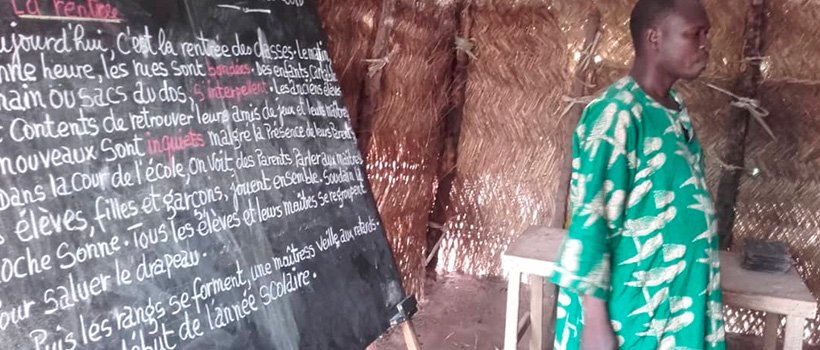 La rentrée
ujourd'hui, c'est la rentrée des classes. Le matin
nne heure, les rues sont bondées. Des enfants, cartable
main ou sacs au dos, s'interpellent. Les anciens élèves
t contents de retrouver leurs amis de jeux et leurs maîtres
nouveaux sont inquiets malgré la présence de leurs Parents
Dans la cour de l'école, on voit des Parents Parler aux maîtres
s élèves, filles et garçons, jouent ensemble. Soudain la
loche sonne. Tous les élèves et leurs maîtres se regroupent
our saluer le drapeau.
Puis les rangs se forment, une maîtress veille aux retards.
début de l'année scolaire.